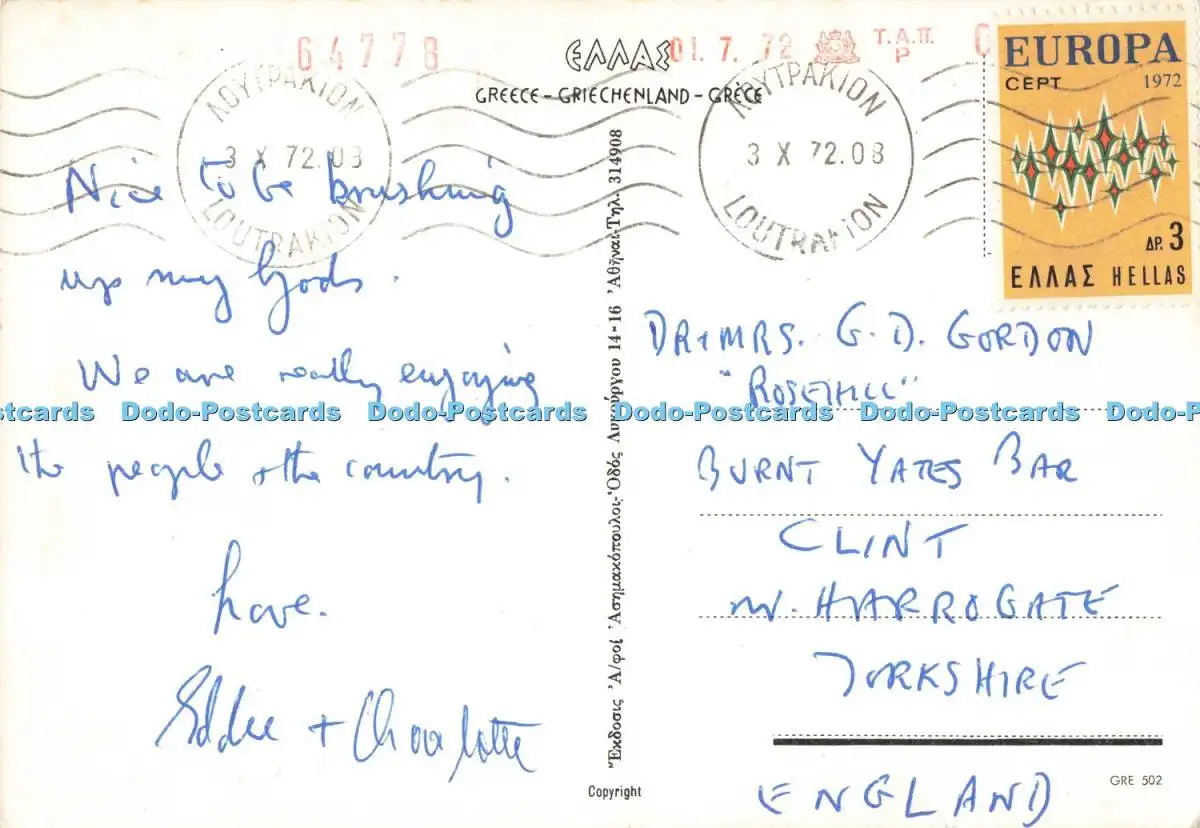 64778
ΕΛΛΑΣ
01.7.72
Τ.Α.Π.
P
GREECE - GRIECHENLAND - GRÈCE
ΛΟΥΤΡΑΚΙΟΝ
3 X 72.08
LOUTRAKION
ΛΟΥΤΡΑΚΙΟΝ
3 X 72.08
LOUTRAKION
EUROPA
CEPT 1972
ΔΡ. 3
ΕΛΛΑΣ HELLAS
Nice to be brushing
up my Gods.
We are really enjoying
the people & the country.
Love.
Eddie + Charlotte
Ἔκδοσις Ἀ/φοί Ἀσημακόπουλοι-Ὁδός Λυκούργου 14-16 Ἀθῆναι-Τηλ. 314908
Copyright
DR & MRS. G. D. GORDON
"ROSEHILL"
BURNT YATES BAR
CLINT
Nr. HARROGATE
YORKSHIRE
ENGLAND
GRE 502
Dodo-Postcards Dodo-Postcards Dodo-Postcards Dodo-Postcards